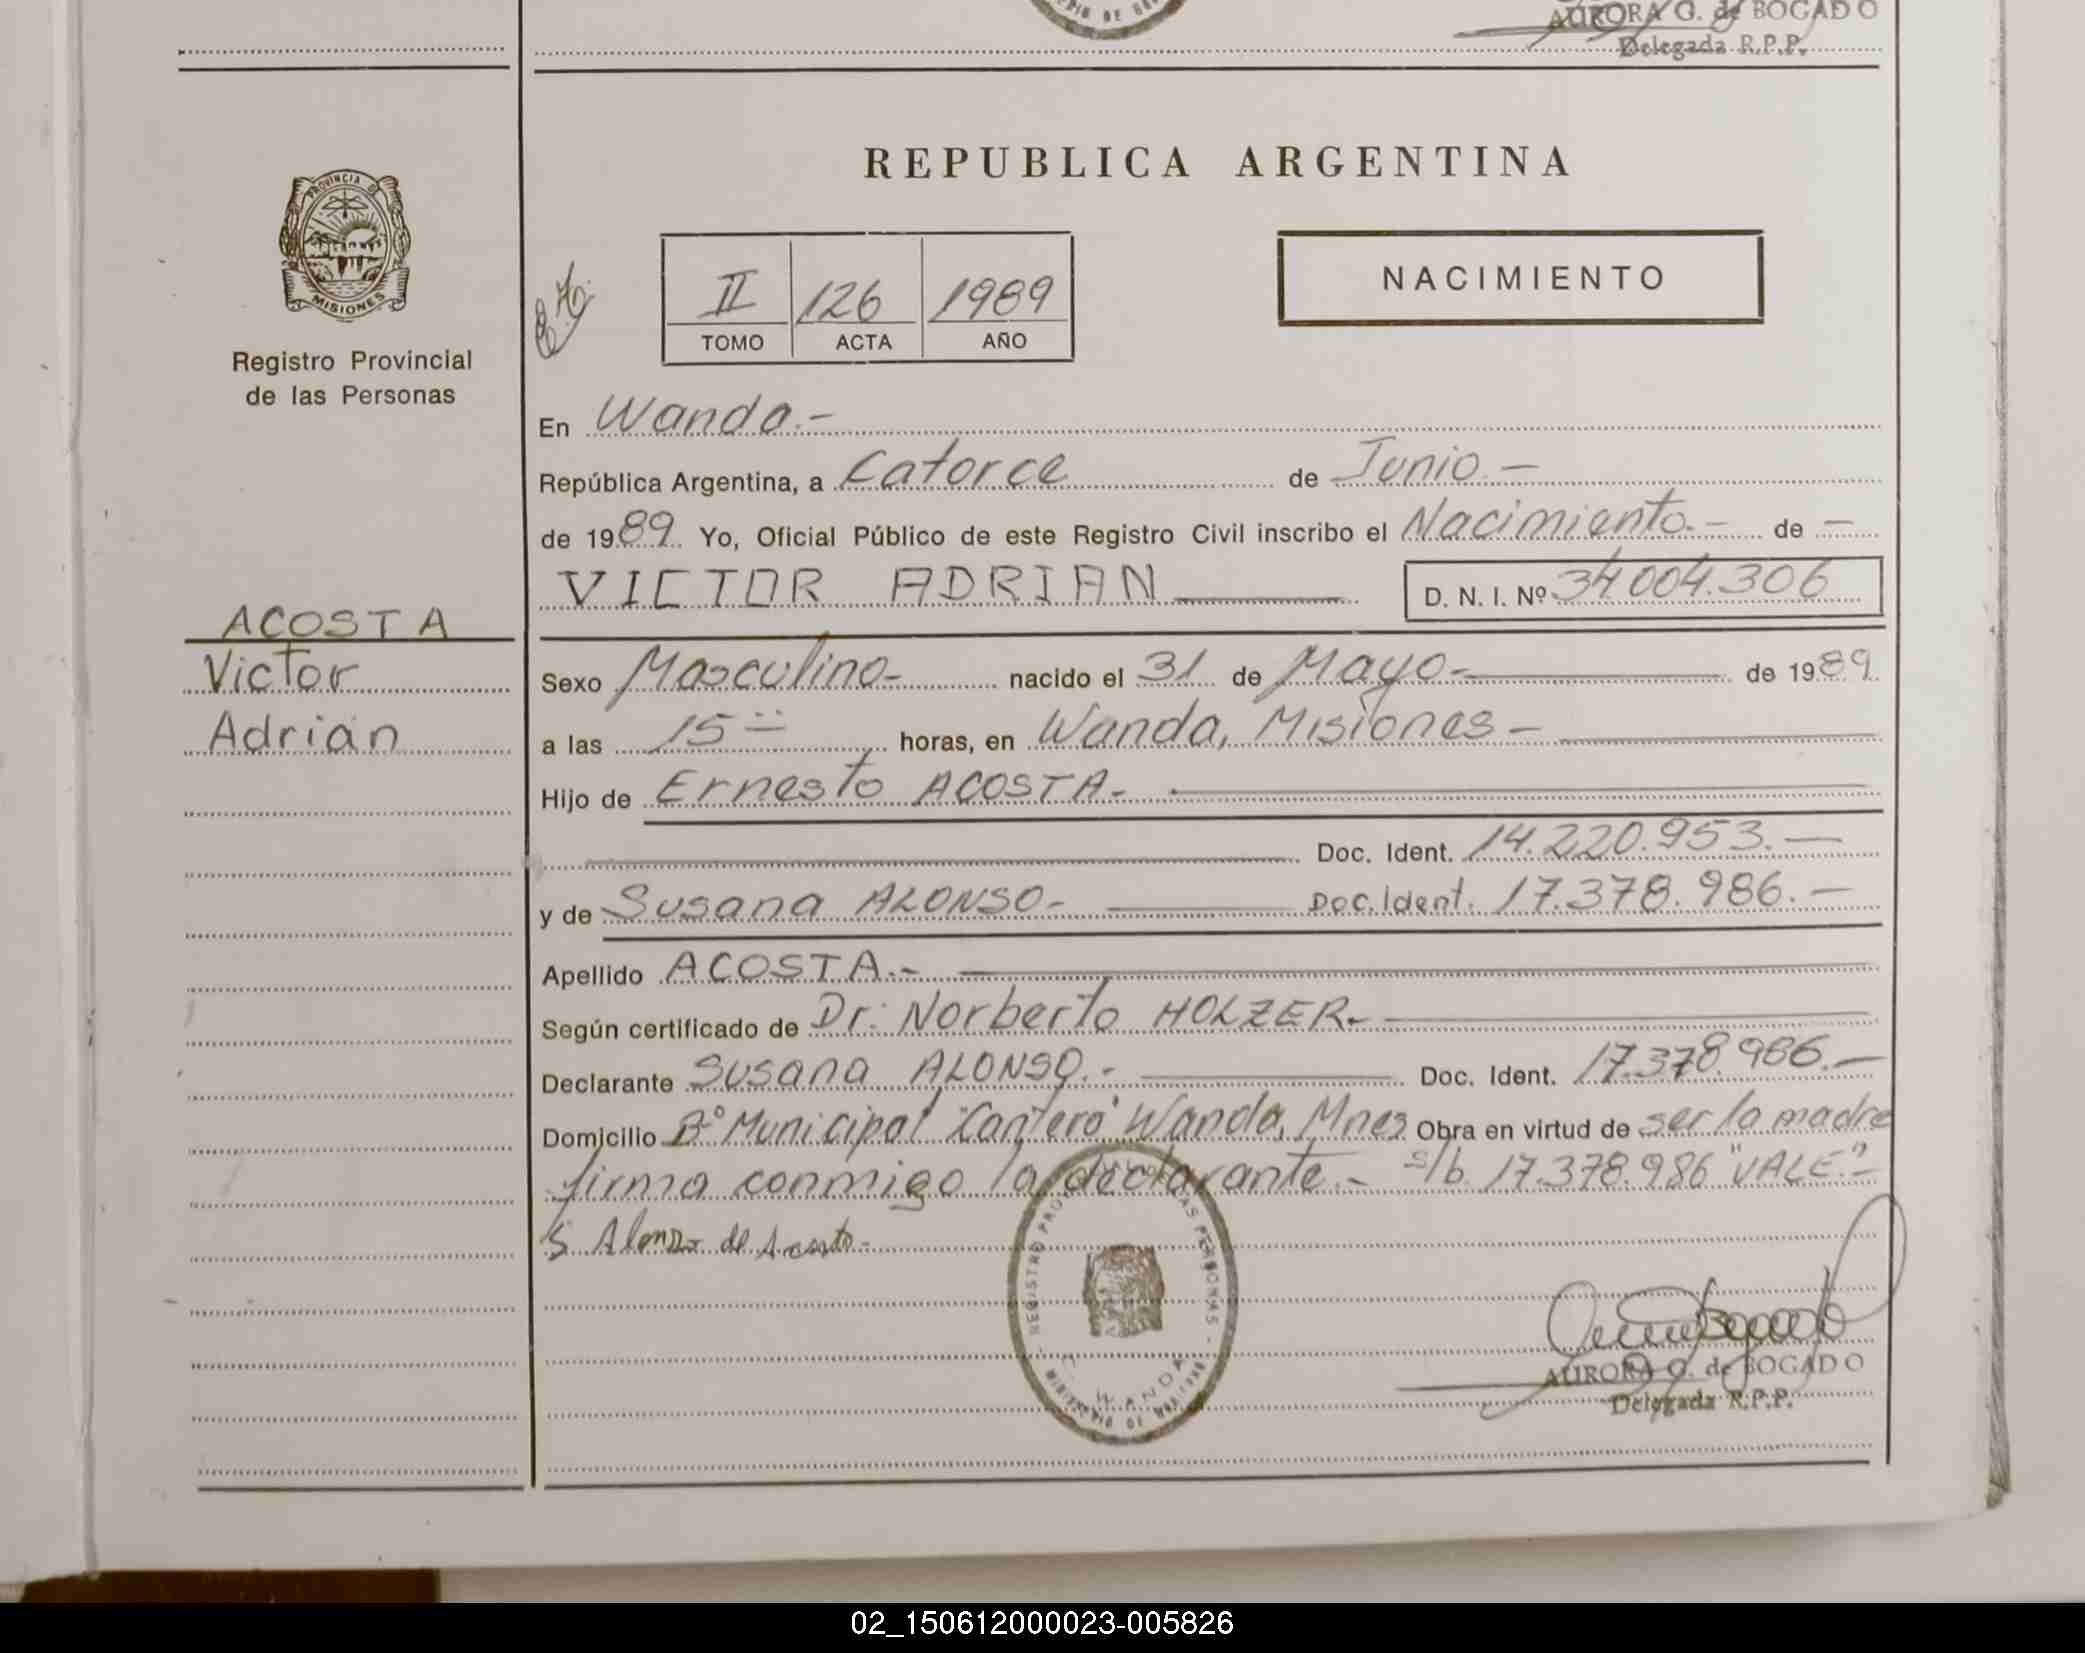 AURORA G. de BOGADO
Delegada R.P.P.
PROVINCIA DE
MISIONES
Registro Provincial
de las Personas
ACOSTA
Victor
Adrián
REPUBLICA ARGENTINA
II 126 1989
TOMO ACTA AÑO
NACIMIENTO
En Wanda.-
República Argentina, a Catorce de Junio.-
de 1989 Yo, Oficial Público de este Registro Civil inscribo el Nacimiento.- de -
VICTOR ADRIAN D. N. I. Nº 34.004.306
Sexo Masculino- nacido el 31 de Mayo- de 1989
a las 15 horas, en Wanda, Misiones-
Hijo de Ernesto ACOSTA.-
Doc. Ident. 14.220.953.-
y de Susana ALONSO- Doc. Ident. 17.378.986.-
Apellido ACOSTA.-
Según certificado de Dr. Norberto HOLZER.-
Declarante Susana ALONSO.- Doc. Ident. 17.378.986.-
Domicilio Bº Municipal "Cantero" Wanda, Mnes Obra en virtud de ser la madre
firma conmigo la declarante.- s/b. 17.378.986 "VALE".-
S Alonso de Acosta-
REGISTRO PROVINCIAL DE LAS PERSONAS
WANDA
MINISTERIO DE GOBIERNO
AURORA G. de BOGADO
Delegada R.P.P.
02_150612000023-005826